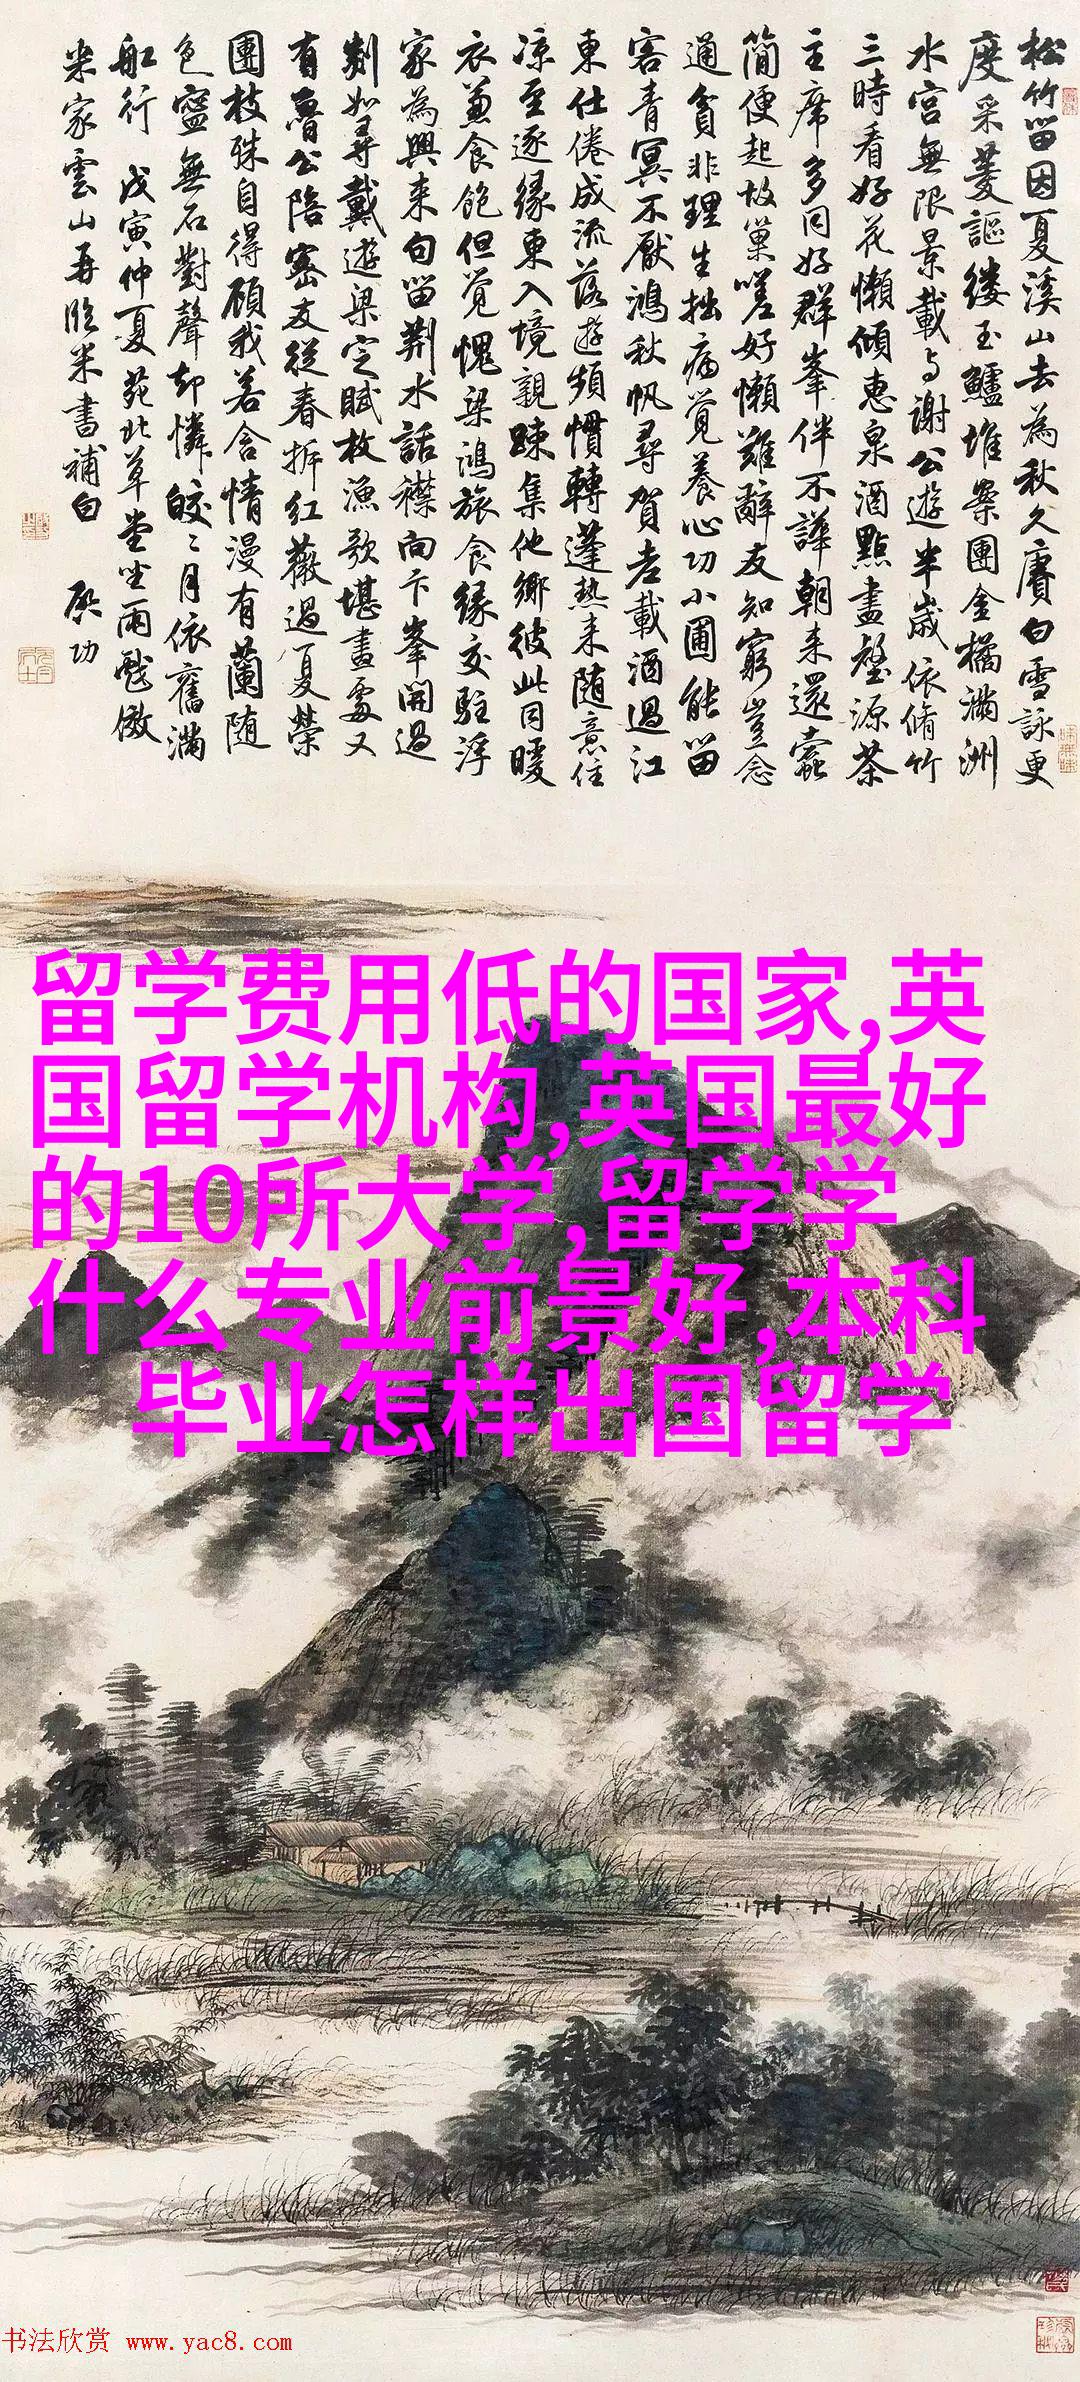 松竹留因夏溪山去為秋久賡白雪詠更
度采菱謳縷玉鱸堆案團金橘滿洲
水宮無限景載與謝公遊半歲依脩竹
三時看好花懶傾惠泉酒點盡壑源茶
主席多同好群峯伴不譁朝来還蠹
簡便起故巢嗟好懶難辭友知窮豈念
通貧非理生拙病覺養心功小圃能留
客青冥不厭鴻秋帆尋賀老載酒過江
東仕倦成流落遊頻慣轉蓬熱来随意住
凉至逐緣東入境親踈集他鄉彼此同暖
衣兼食飽但覺愧梁鴻旅食緣交駐浮
家為興来句留荆水話襟向卞峯開過
剡如尋戴遊梁定賦枚漁歌堪畫處又
有魯公陪密友從春拆紅薇過夏榮
團枝殊自得顧我若含情漫有蘭随
色寧無石對聲却憐皎:月依舊滿
舡行 戊寅仲夏苑北草堂坐雨戲倣
米家雲山再臨米書補白 啓功
留学费用低的国家,英
国留学机构,英国最好
的10所大学,留学学
什么专业前景好,本科
毕业怎样出国留学
书法欣赏 www.yac8.com